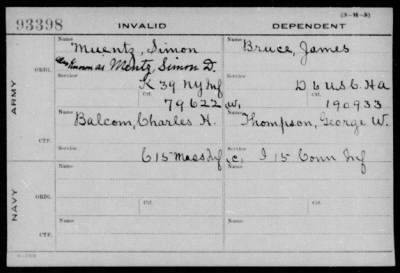 (3-H-3)
93398 INVALID DEPENDENT
ARMY
ORIG.
Name Muentz, Simon
Also Known as Mentz, Simon D.
Service K 39 NY Inf
Ctf. 79622
Name Bruce, James
Service D 6 U.S.C. H A
W. Ctf. 190933
CTF.
Name Balcom, Charles H.
Service C 15 Mass Inf
Name Thompson, George W.
Service C, I 15 Conn Inf
NAVY
ORIG.
Name
Service Ctf.
Name
Service Ctf.
CTF.
Name
Service
Name
Service